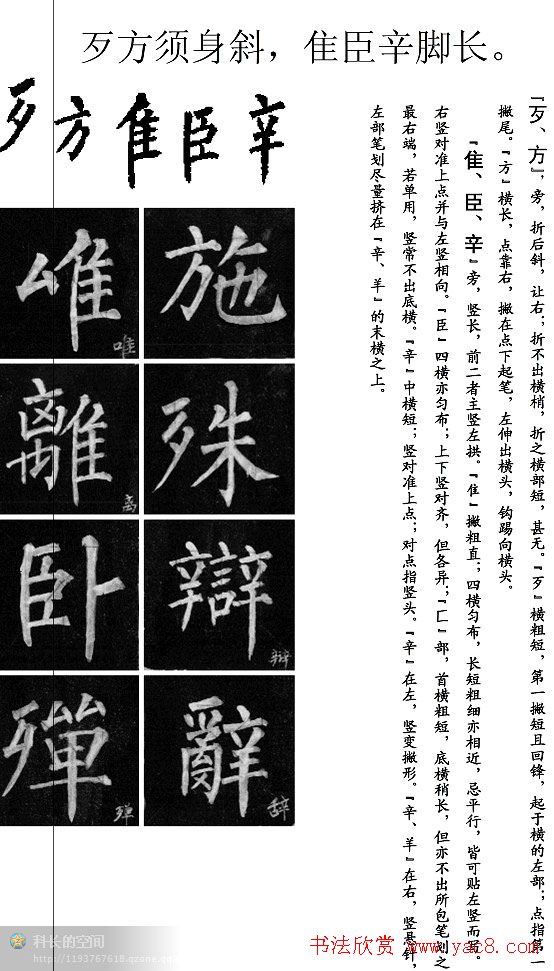 歹方须身斜，隹臣辛脚长。
歹方隹臣辛
『歹、方』，旁，折后斜，让右；折不出横梢，折之横部短，甚无。『歹』横粗短，第一撇短且回锋，起于横的左部；点指第一
撇尾。『方』横长，点靠右，撇在点下起笔，左伸出横头，钩踢向横头。
『隹、臣、辛』旁，竖长，前二者主竖左拱。『隹』撇粗直；四横匀布，长短粗细亦相近，忌平行，皆可贴左竖而五。
右竖对准上点并与左竖相向。『臣』四横亦匀布；上下竖对齐，但各异；『匚』部，首横粗短，底横稍长，但亦不出所包笔划之
最右端，若单用，竖常不出底横。『辛』中横短；竖对准上点；对点指竖头。『辛』在左，竖变撇形。『辛、羊』在右，竖悬针，
左部笔划尽量挤在『辛、羊』的末横之上。
施
唯
唯
殊
離
离
辯
辩
卧
辭
辞
殫
殚
科长的空间
http://1193767618.qzone.qq
书法欣赏 www.yac8.com